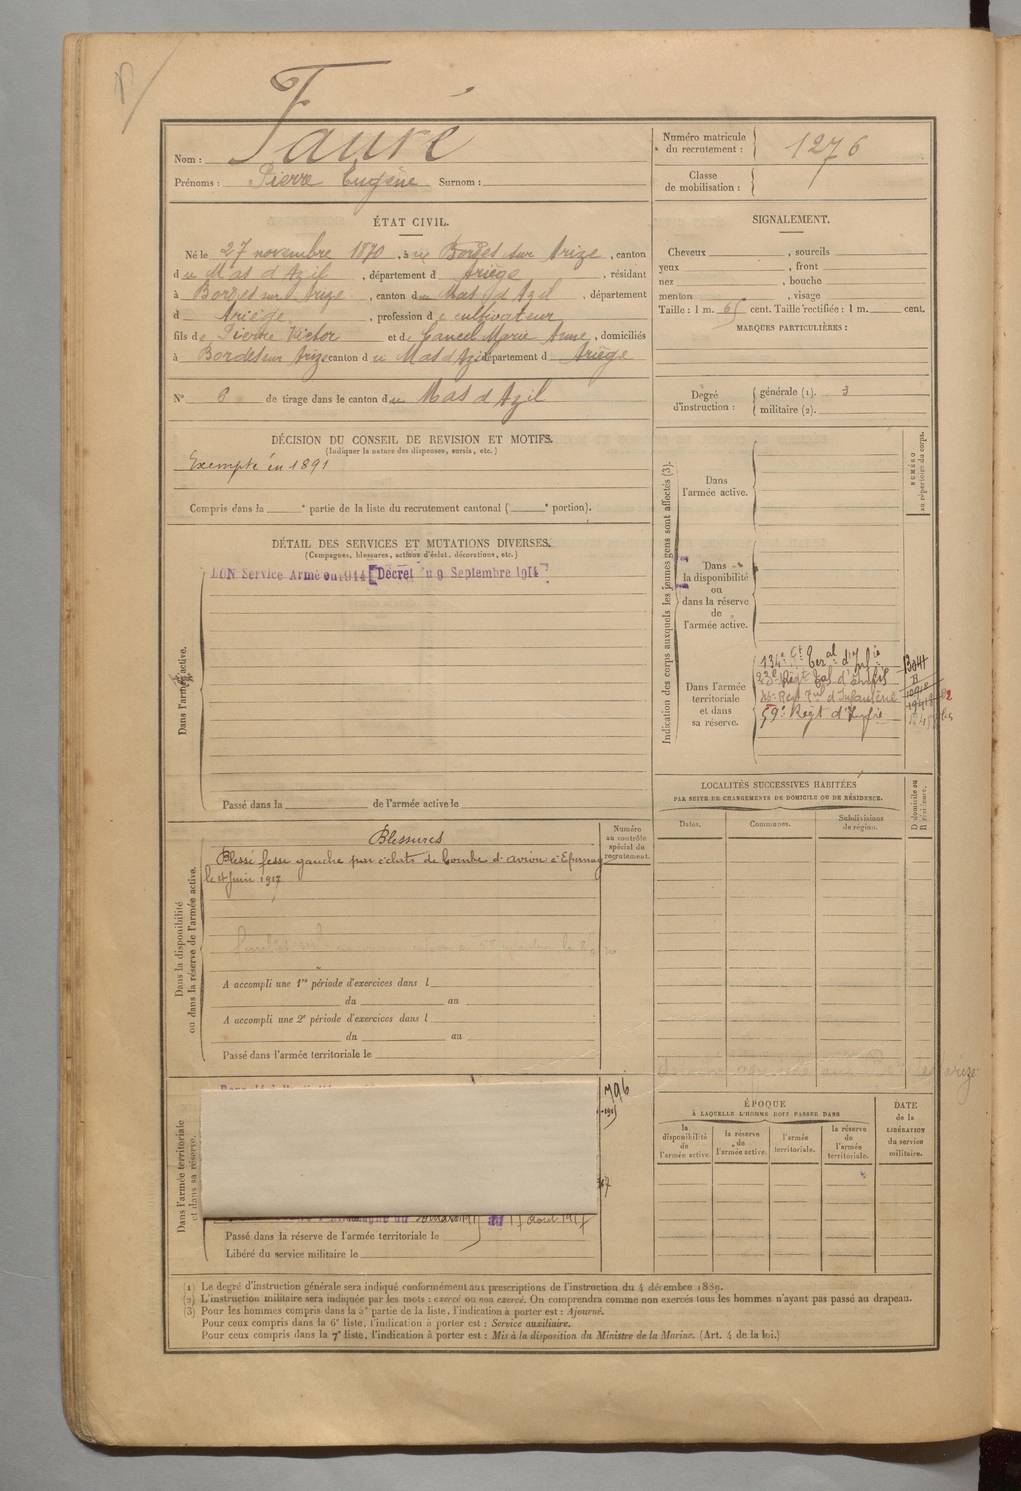 Fauré
Nom :
Numéro matricule
du recrutement :
1276
Prénoms : Pierre Eugène Surnom :
Classe
de mobilisation :
ÉTAT CIVIL.
Né le 27 novembre 1870, à Bordes sur Arize, canton
du Mas d'Azil, département d Ariège, résidant
à Bordes sur Arize, canton du Mas d'Azil, département
d Ariège, profession de cultivateur
fils de Pierre Victor et de Cancel Marie Anne, domiciliés
à Bordes sur Arize canton du Mas d'Azil département d Ariège
N° 6 de tirage dans le canton du Mas d'Azil
SIGNALEMENT.
Cheveux , sourcils
yeux , front
nez , bouche
menton , visage
Taille : 1 m. 65 cent. Taille rectifiée : 1 m. cent.
MARQUES PARTICULIÈRES :
Degré
d'instruction :
générale (1). 3
militaire (2).
DÉCISION DU CONSEIL DE REVISION ET MOTIFS.
(Indiquer la nature des dispenses, sursis, etc.)
Exempté en 1891
Compris dans la e partie de la liste du recrutement cantonal ( e portion).
DÉTAIL DES SERVICES ET MUTATIONS DIVERSES.
(Campagnes, blessures, actions d'éclat, décorations, etc.)
BON Service Armé en 1914 [Décret du 9 Septembre 1914]
Dans l'armée active.
Passé dans la de l'armée active le
Indication des corps auxquels les jeunes gens sont affectés (3).
Dans
l'armée active.
NUMÉRO
au répertoire du corps.
Dans
la disponibilité
ou
dans la réserve
de
l'armée active.
Dans l'armée
territoriale
et dans
sa réserve.
134e Rt Teral d'Infie
23e Régt Tal d'Infie
Régt Tal d'Infanterie
59e Régt d'Infie
LOCALITÉS SUCCESSIVES HABITÉES
PAR SUITE DE CHANGEMENTS DE DOMICILE OU DE RÉSIDENCE.
D domicile ou
R résidence.
Dates.
Communes.
Subdivisions
de région.
Dans la disponibilité
ou dans la réserve de l'armée active.
Numéro
au contrôle
spécial du
recrutement.
Blessures
Blessé fesse gauche par éclats de bombe d'avion à Epernay
le Juin 1917
A accompli une 1re période d'exercices dans l
du au
A accompli une 2e période d'exercices dans l
du au
Passé dans l'armée territoriale le
Dans l'armée territoriale
et dans sa réserve.
796
1917
Passé dans la réserve de l'armée territoriale le
Libéré du service militaire le
ÉPOQUE
À LAQUELLE L'HOMME DOIT PASSER DANS
la
disponibilité
de
l'armée active.
la réserve
de
l'armée active.
l'armée
territoriale.
la réserve
de
l'armée
territoriale.
DATE
de la
LIBÉRATION
du service
militaire.
(1) Le degré d'instruction générale sera indiqué conformément aux prescriptions de l'instruction du 4 décembre 1889.
(2) L'instruction militaire sera indiquée par les mots : exercé ou non exercé. On comprendra comme non exercés tous les hommes n'ayant pas passé au drapeau.
(3) Pour les hommes compris dans la 5e partie de la liste, l'indication à porter est : Ajourné.
Pour ceux compris dans la 6e liste, l'indication à porter est : Service auxiliaire.
Pour ceux compris dans la 7e liste, l'indication à porter est : Mis à la disposition du Ministre de la Marine. (Art. 4 de la loi.)